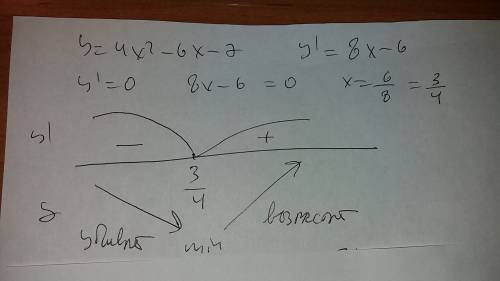 y = 4x² - 6x - 7 y' = 8x - 6
y' = 0 8x - 6 = 0 x = 6/8 = 3/4
y' - +
3/4
y убывает min возрастает